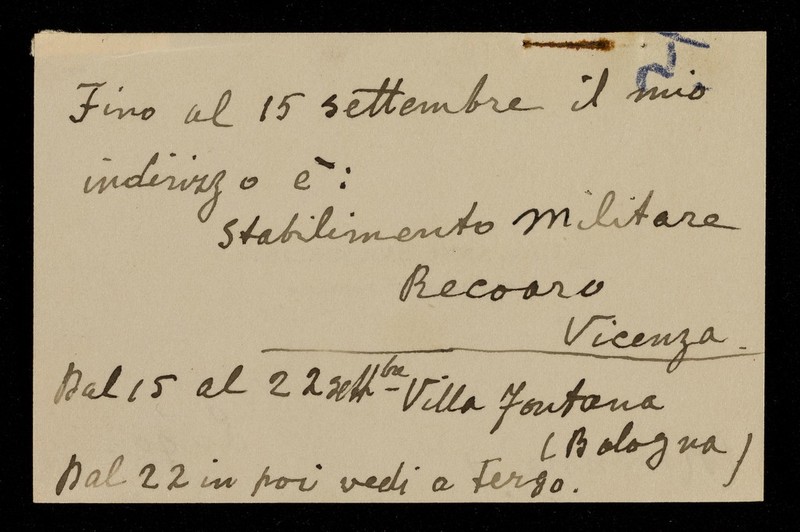 Fino al 15 settembre il mio
indirizzo è:
Stabilimento Militare
Recoaro
Vicenza.
Dal 15 al 22 settbre - Villa Fontana
(Bologna)
Dal 22 in poi vedi a tergo.